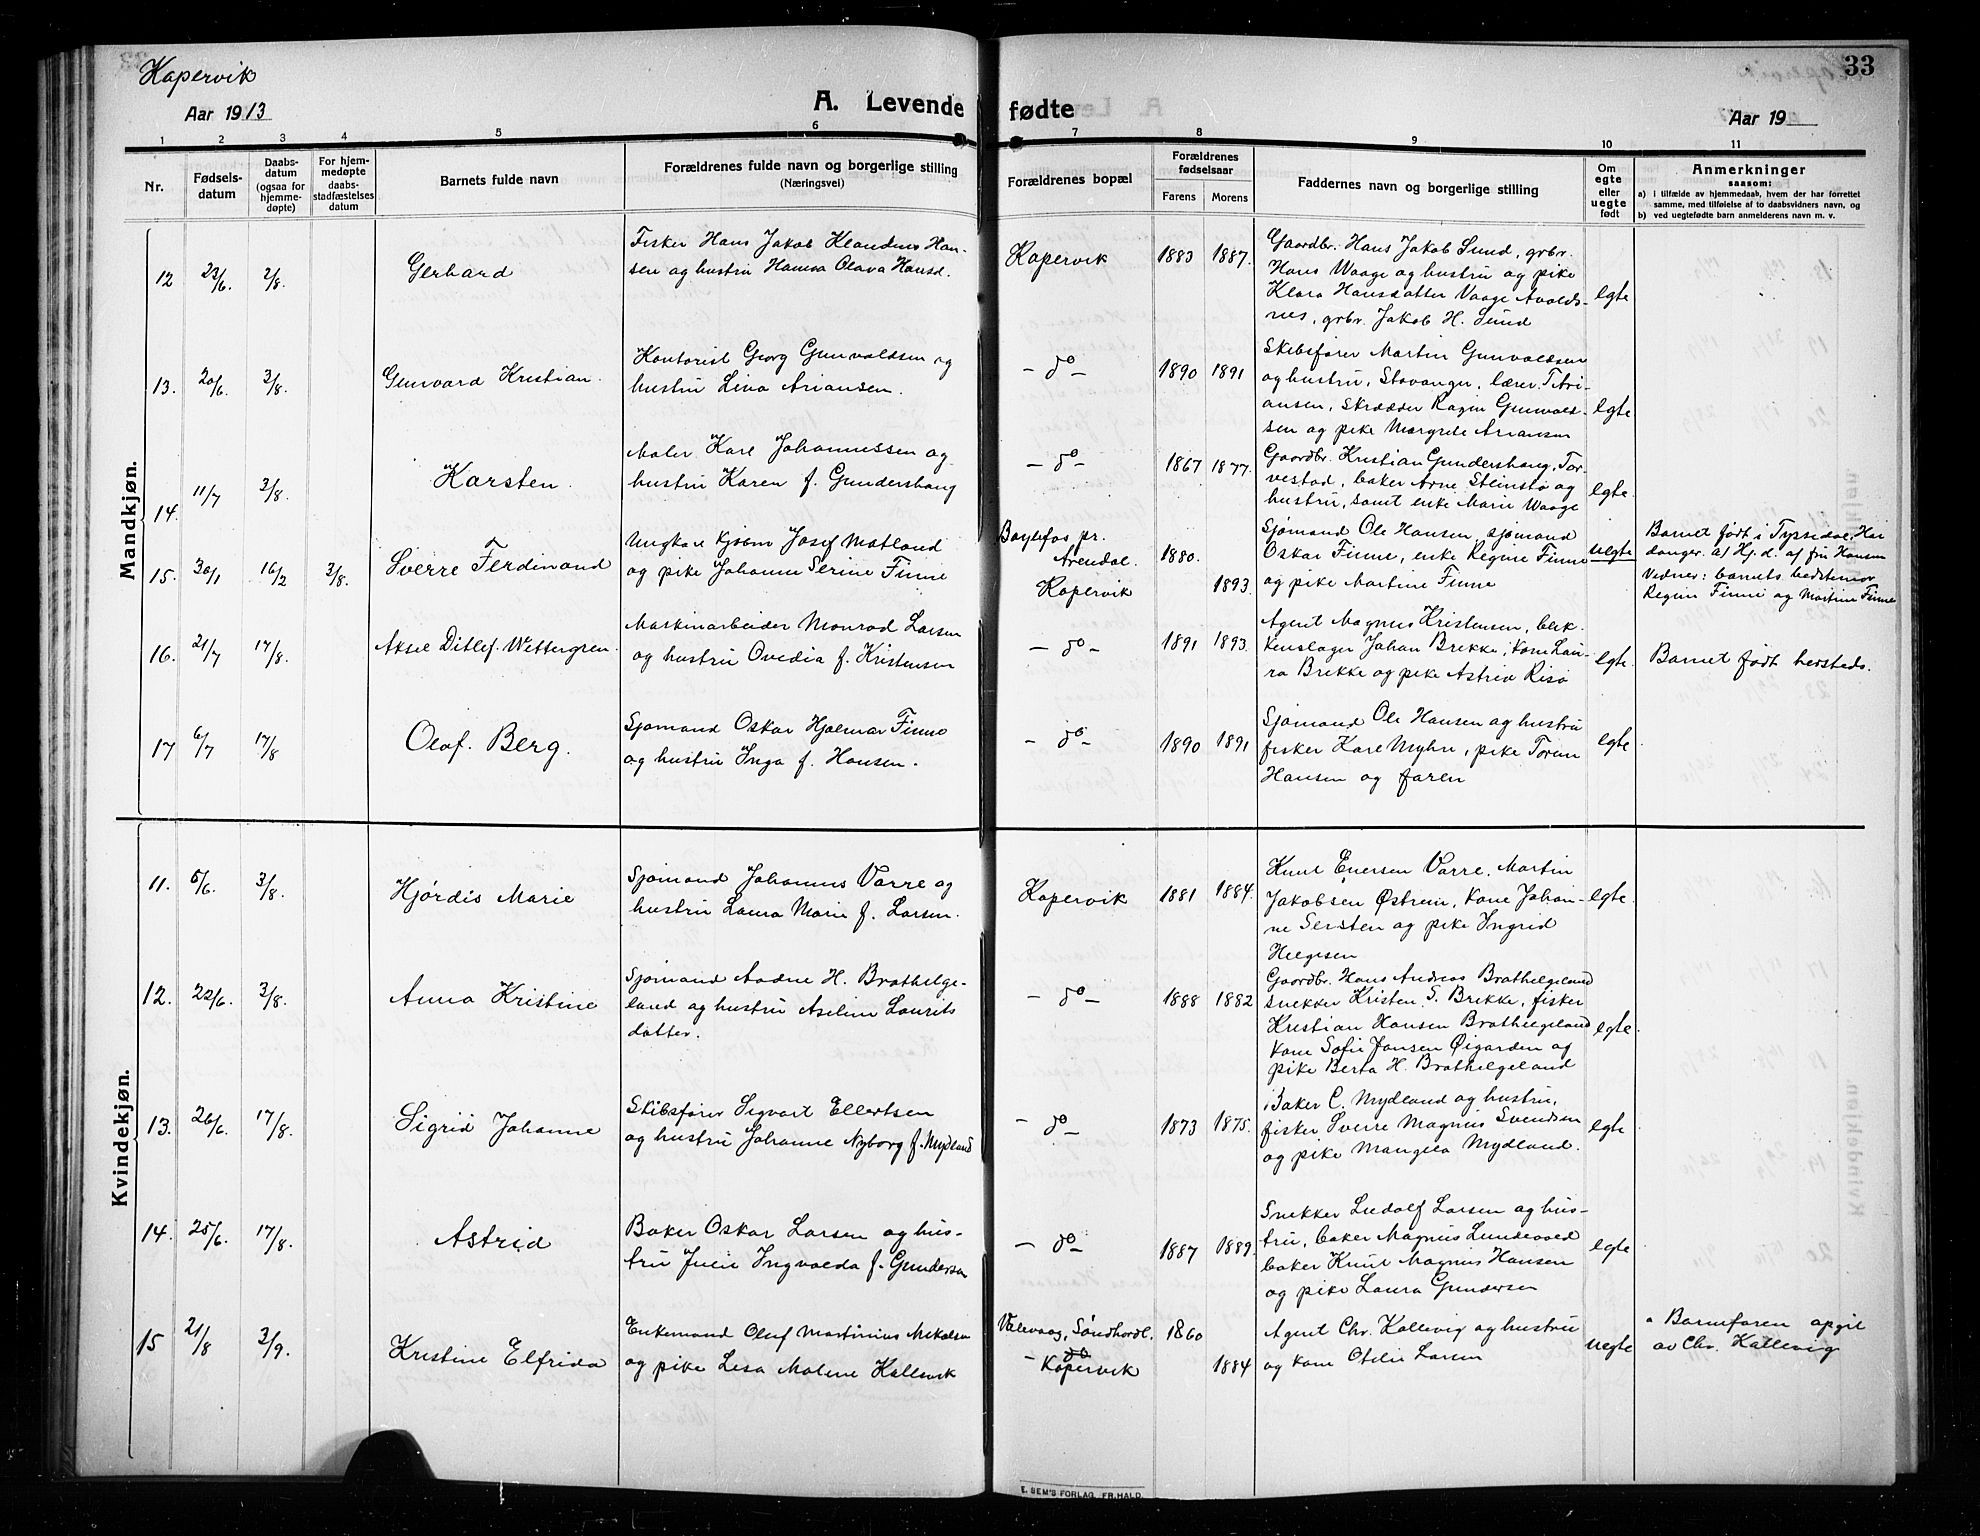 Kopervik
33
Aar 1913
A. Levende fødte
Aar 19
1 2 3 4 5 6 7 8 9 10 11
Nr.
Fødsels-
datum
Daabs-
datum
(ogsaa for
hjemme-
døpte)
For hjem-
medøpte
daabs-
stadfæstelses
datum
Barnets fulde navn
Forældrenes fulde navn og borgerlige stilling
(Næringsvei)
Forældrenes bopæl
Forældrenes
fødselsaar
Farens Morens
Faddernes navn og borgerlige stilling
Om
egte
eller
uegte
født
Anmerkninger
saasom:
a) i tilfælde av hjemmedaab, hvem der har forrettet
samme, med tilføielse af to daabsvidners navn, og
b) ved uegtefødte barn anmelderens navn m. v.
Mandkjøn.
12 22/6. 2/8. Gerhard
Fisker Hans Jakob Klaudius Han-
sen og hustru Hansa Olava Hansd.
Kopervik 1883 1887.
Gaardbr. Hans Jakob Sund, grbr.
Hans Waage og hustru og pike
Klara Hansdatter Vaage Avalds-
nes, grbr. Jakob H. Sund
egte
13. 20/6. 3/8. Gunvard Kristian.
Kontorist Georg Gunvaldsen og
hustru Lina Ariansen.
- do - 1890 1891
Skibsfører Martin Gunvaldsen
og hustru, Stavanger, lærer T. Ari-
ansen, Skrædder Ragin Gunvald-
sen og pike Margrete Ariansen
egte
14. 11/7 3/8. Karsten.
Maler Karl Johannessen og
hustru Karen f. Gundershaug
- do - 1867 1877.
Gaardbr. Kristian Gundershaug, Tor-
vestad, baker Arne Steinstø og
hustru, samt enke Marie Waage
egte.
15. 30/1 16/2 3/8. Sverre Ferdinand
Ungkar Josef Matland
og pike Johanne Serine Finne
Bøylefos pr.
Arendal.
Kopervik
1880.
1893.
Sjømand Ole Hansen, sjømand
Oskar Finne, enke Regine Finne
og pike Martine Finne
uegte
Barnet født i Tyssedal, Har
danger. Hj.d. af fru Hansen
Vidner: barnets bedstemor
Regine Finne og Martine Finne
16. 21/7 17/8. Aksel Ditlef. Wettergren.
Maskinarbeider Monrad Larsen
og hustru Ovedia f. Kristensen
- do - 1891 1893.
Agent Magnus Kristensen, blik-
kenslager Johan Brekke, kone Lau-
ra Brekke og pike Astrid Risø
egte.
Barnet født hersteds.
17 6/7 17/8 Olaf. Berg.
Sjømand Oskar Hjalmar Finne
og hustru Inga f. Hansen.
- do - 1890 1891
Sjømand Ole Hansen og hustru
fisker Karl Myhre, pike Toran
Hansen og faren
egte
Kvindekjøn.
11. 5/6. 3/8. Hjørdis Marie
Sjømand Johannes Varre og
hustru Laura Marie f. Larsen.
Kopervik 1881 1884.
Knut Enersen Varre, Martin
Jakobsen Østrem, kone Johan-
ne Sersten og pike Ingrid
Helgesen
egte.
12. 22/6. 3/8. Anna Kristine
Sjømand Aadne H. Brathelge-
land og hustru Aseline Laurits
datter.
- do - 1888 1882
Gaardbr. Hans Andreas Brathelgeland
snekker Kristen S. Brekke, fisker
Kristian Hansen Brathelgeland
kone Sofie Jansen Øigarden og
pike Berta H. Brathelgeland
egte.
13. 26/6. 17/8. Sigrid Johanne
Skibsfører Sigvart Ellertsen
og hustru Johanne Nyborg f. Mydland
- do - 1873 1875.
Baker C. Mydland og hustru,
fisker Sverre Magnus Svendsen
og pike Mangela Mydland.
egte
14. 25/6. 17/8. Astrid
Baker Oskar Larsen og hus-
tru Julie Ingvalda f. Gundersen
- do - 1887 1889.
Snekker Ludolf Larsen og hus-
tru, baker Magnus Lundevold
baker Knut Magnus Hansen
og pike Laura Gundersen
egte
15 21/8 3/9. Kristine Elfrida
Enkemand Oluf Martinius Mikalsen
og pike Lisa Malene Kallevik
Valevaag, Søndhordl.
- do
Kopervik
1860
1884
Agent Chr. Kallevig og hustru
og kone Otelie Larsen
uegte
Barnefaren opgit
av Chr. Kallevig
E. SEM'S FORLAG, FR.HALD.